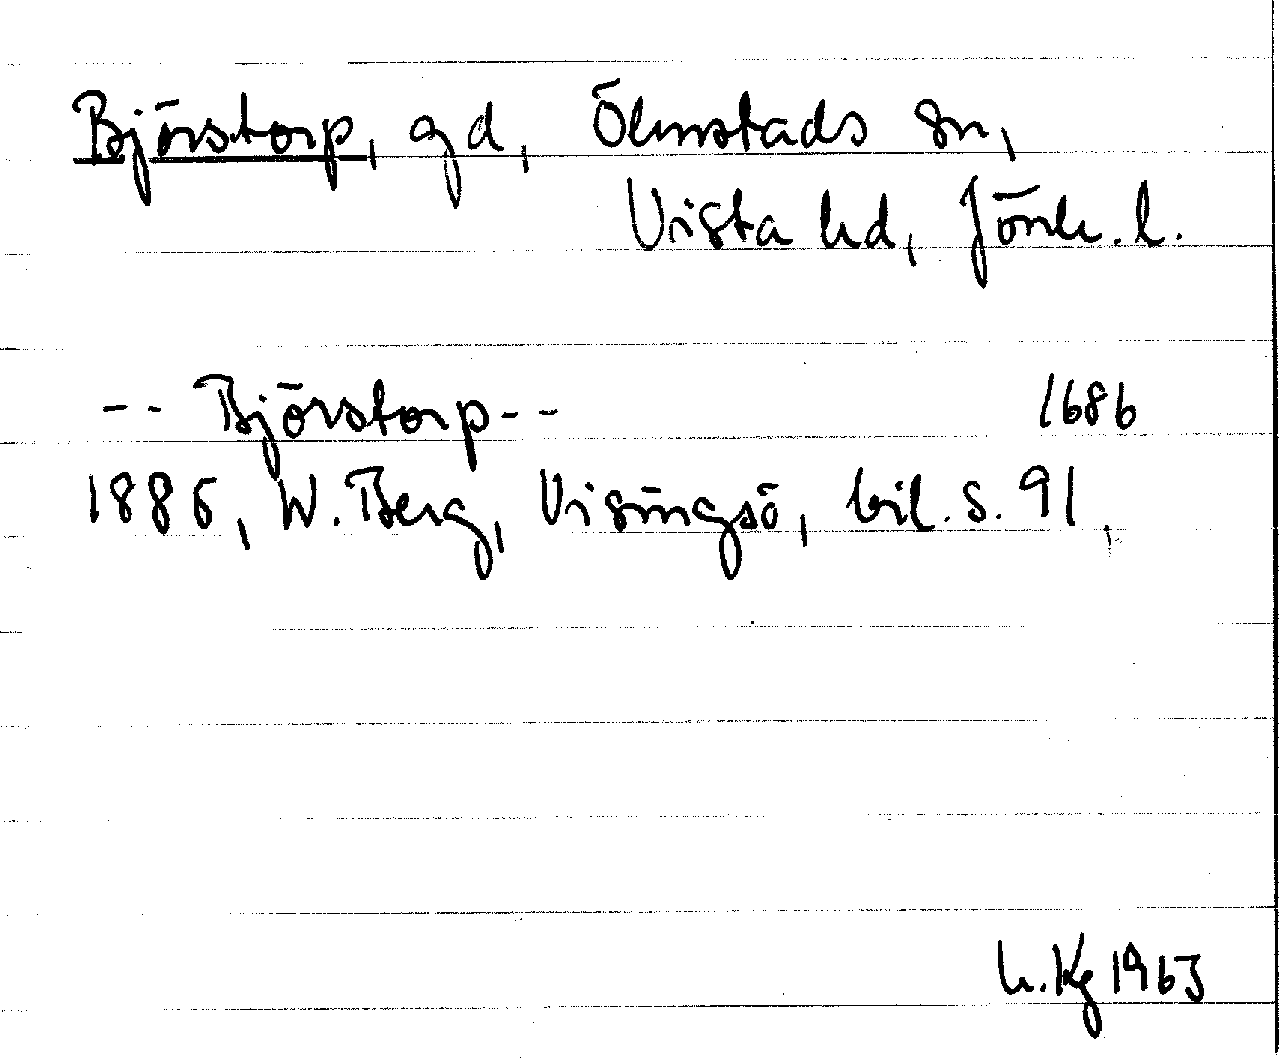 Björstorp, gd, Ölmstads sn,
Vista hd, Jönk. l.
-- Björstorp -- 1686
1885, W. Berg, Visingsö, bil. s. 91,
h. Kg 1963